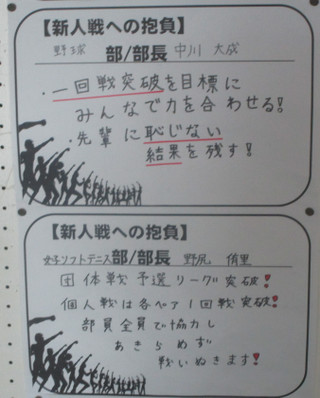 【新人戦への抱負】
野球 部/部長 中川 大成
・一回戦突破を目標に
みんなで力を合わせる!
・先輩に恥じない
結果を残す!
【新人戦への抱負】
女子ソフトテニス部/部長 野尻 侑里
団体戦予選リーグ突破!
個人戦は各ペア1回戦突破!
部員全員で協力し
あきらめず
戦いぬきます!